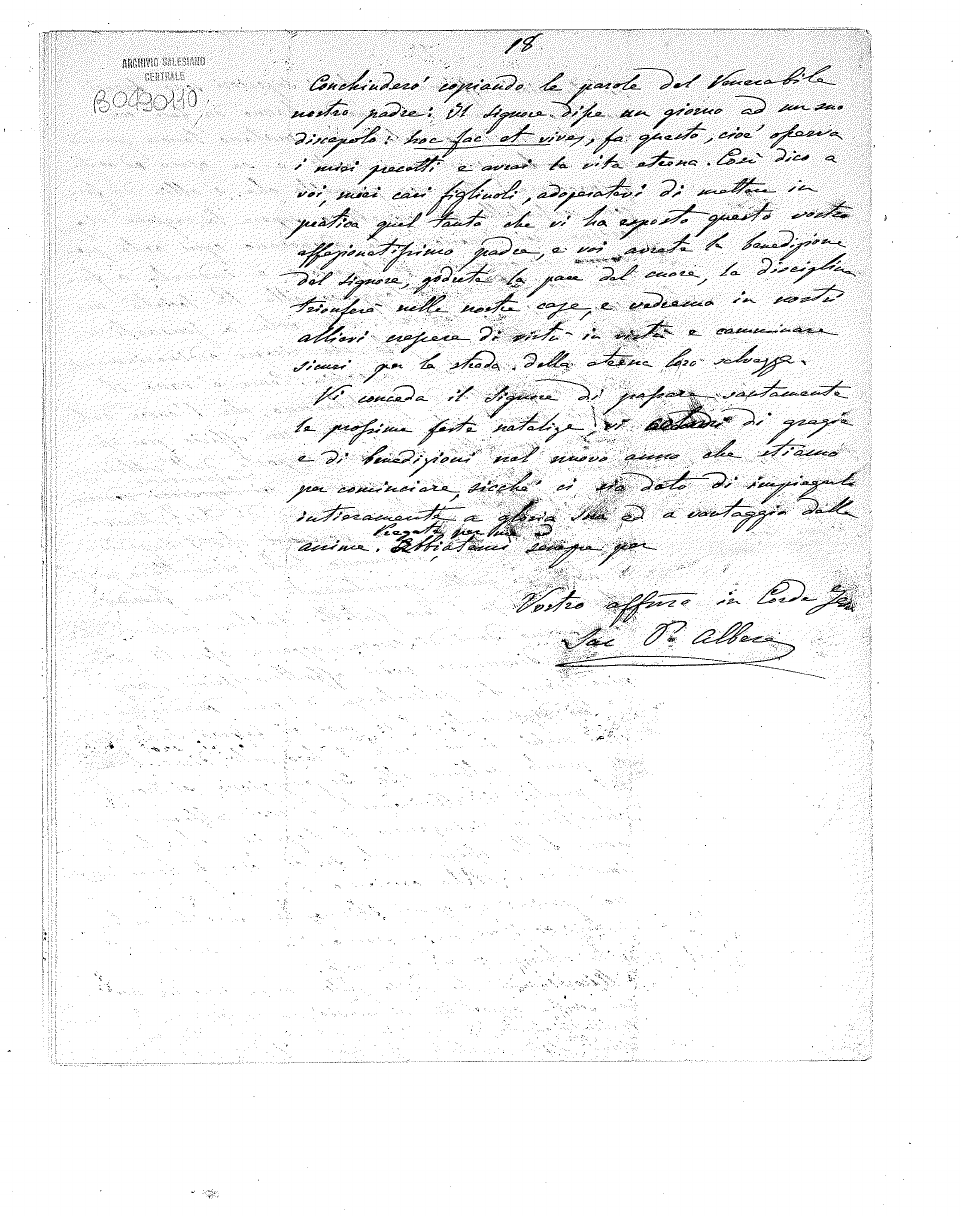 18
ARCHIVIO SALESIANO
CENTRALE
B0490110
Conchiuderò copiando le parole del Venerabile
nostro padre: Il Signore disse un giorno ad un suo
discepolo: hoc fac et vives, fa questo, cioè osserva
i miei precetti e avrai la vita eterna. Così dico a
voi, miei cari figliuoli, adoperatevi di mettere in
pratica quel tanto che vi ha esposto questo vostro
affezionatissimo padre, e voi avrete la benedizione
del Signore, godrete la pace del cuore, la disciplina
trionferà nelle nostre case, e vedremo in nostri
allievi crescere di virtù in virtù e camminare
sicuri per la strada della eterna loro salvezza.
Vi conceda il Signore di passare santamente
le prossime feste natalizie, vi di grazie
e di benedizioni nel nuovo anno che stiamo
per cominciare, sicché ci sia dato di impiegarlo
intieramente a gloria sua ed a vantaggio delle
Pregate per me ed
anime. Abbiatemi sempre per
Vostro affmo in Corde Jesu
Sac P. Albera